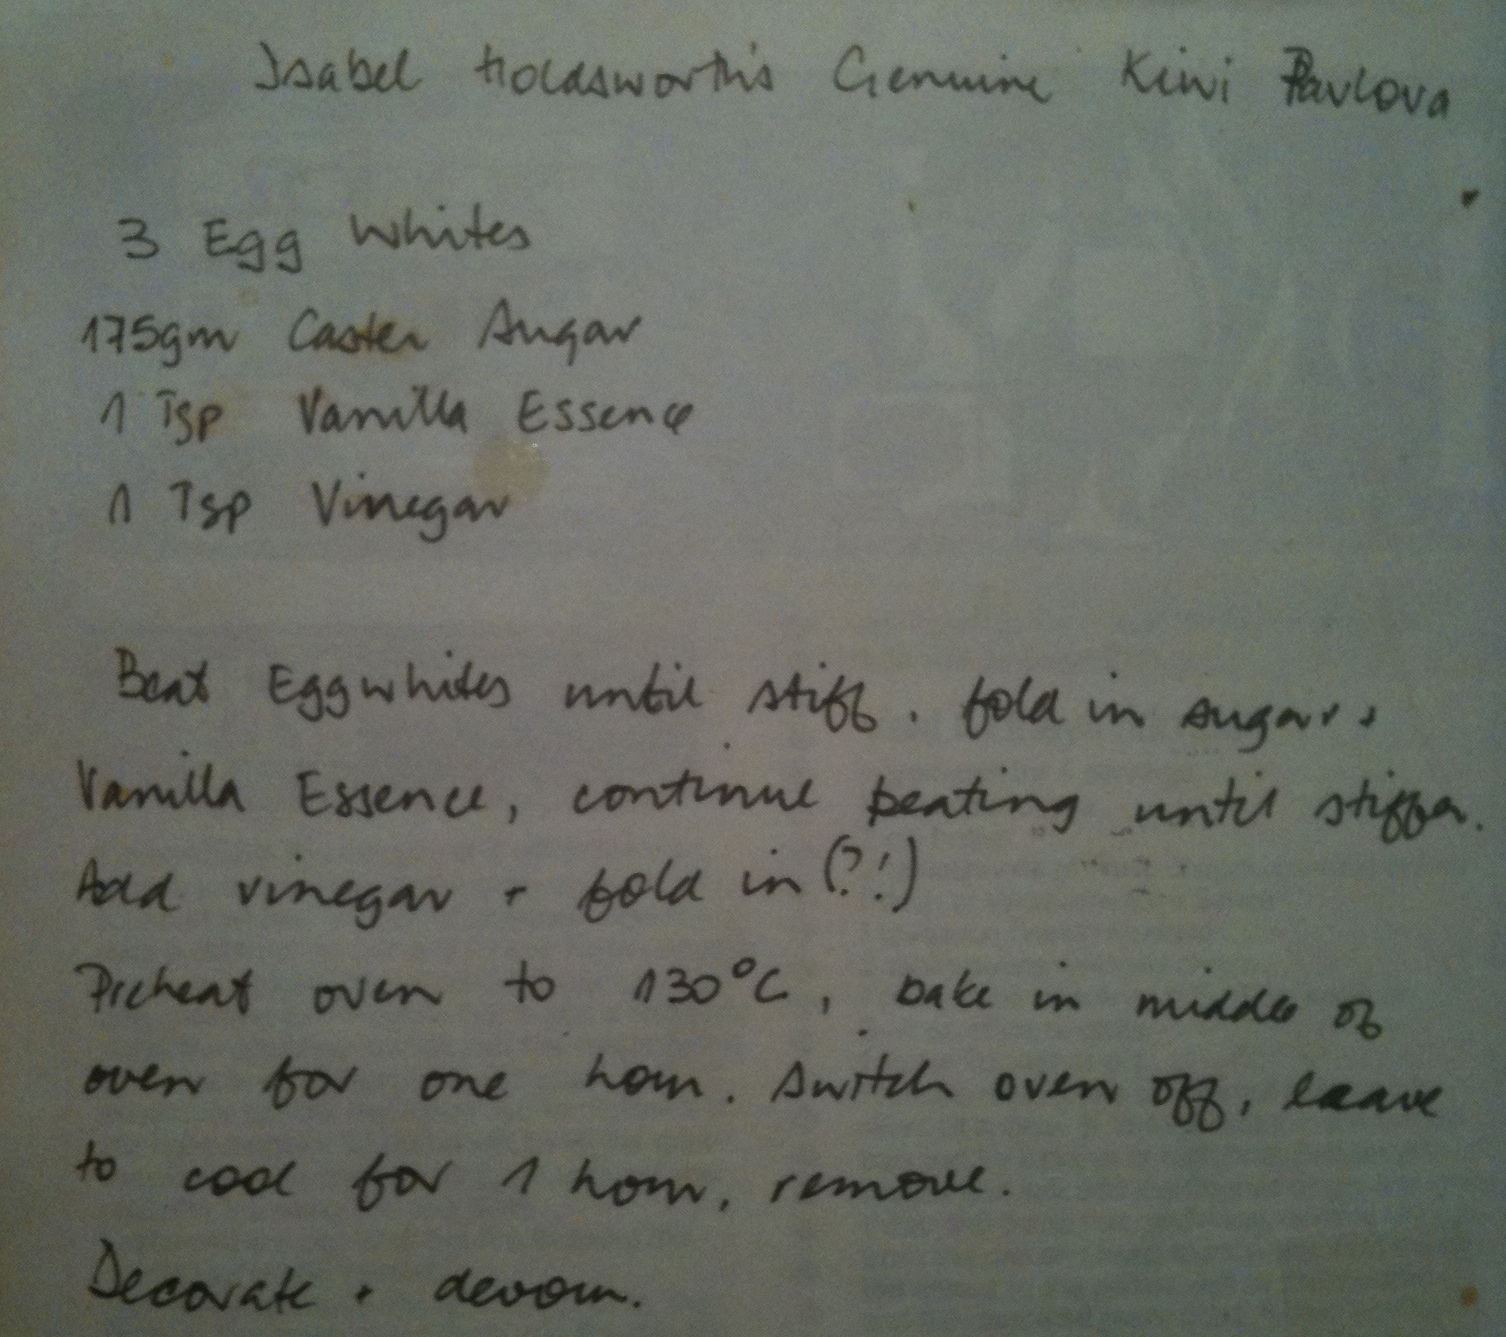 Isabel Holdsworth's Genuine Kiwi Pavlova
3 Egg Whites
175gm Caster Sugar
1 Tsp Vanilla Essence
1 Tsp Vinegar
Beat Eggwhites until stiff. fold in sugar +
Vanilla Essence, continue beating until stiffer.
Add vinegar + fold in (?!)
Preheat oven to 130°C, bake in middle of
oven for one hour. Switch oven off, leave
to cool for 1 hour, remove.
Decorate + devour.